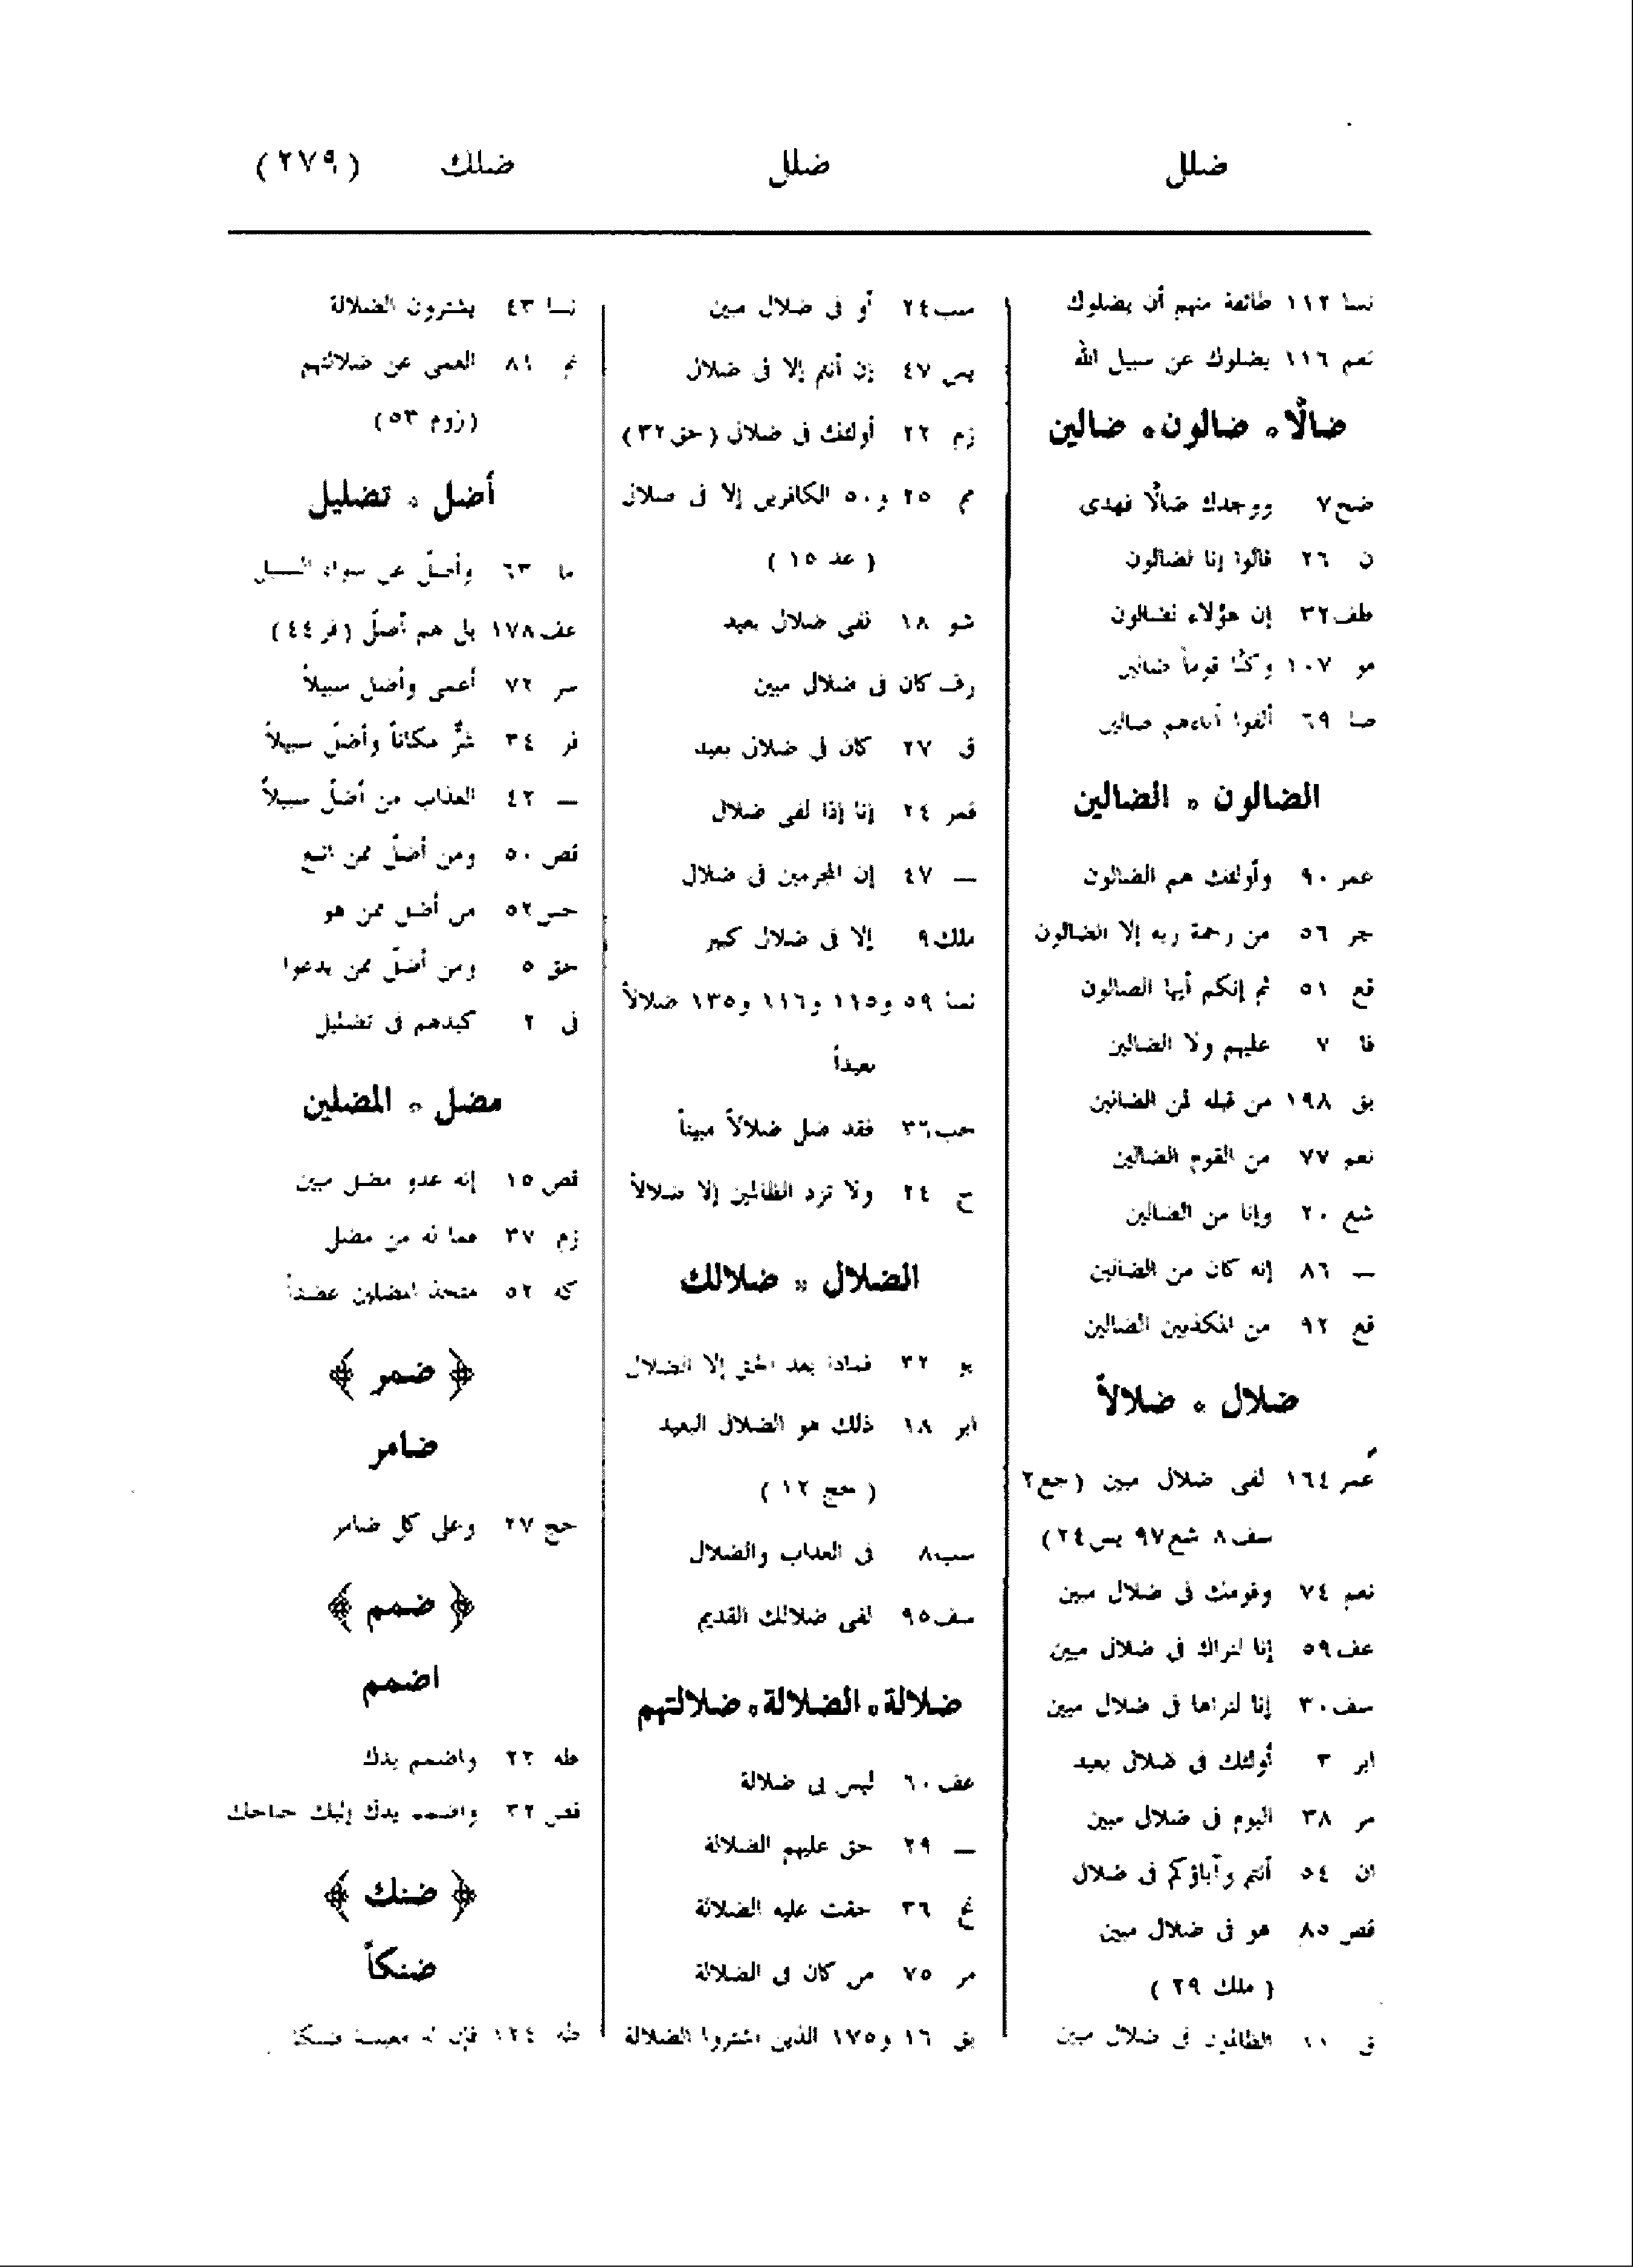 ضلل
ضلل
ضلك (٢٧٩)
نسا ١١٢ طائفة منهم أن يضلوك
نعم ١١٦ يضلوك عن سبيل الله
ضالًا ۰ ضالون ۰ ضالين
ضح٧ ووجدك ضالًا فهدى
ن ٢٦ قالوا إنا لضالون
طف٣٢ إن هؤلاء لضالون
مو ١٠٧ وكنّا قوماً ضالين
صا ٦٩ ألفوا آباءهم ضالين
الضالون ۰ الضالين
عمر ٩٠ وأولئك هم الضالون
جر ٥٦ من رحمة ربه إلا الضالون
قع ٥١ ثم إنكم أيها الضالون
فا ٧ عليهم ولا الضالين
بق ١٩٨ من قبله لمن الضالين
نعم ٧٧ من القوم الضالين
شع ٢٠ وإنا من الضالين
— ٨٦ إنه كان من الضالين
قع ٩٢ من المكذبين الضالين
ضلال ۰ ضلالاً
عمر ١٦٤ لفى ضلال مبين (جع٢
سف٨ شع٩٧ يس٢٤)
نعم ٧٤ وقومك فى ضلال مبين
عف٥٩ إنا لنراك فى ضلال مبين
سف٣٠ إنا لنراها فى ضلال مبين
ابر ٣ أولئك فى ضلال بعيد
مر ٣٨ اليوم فى ضلال مبين
ان ٥٤ أنتم وآباؤكم فى ضلال
قص ٨٥ هو فى ضلال مبين
( ملك ٢٩ )
ق ١٠ الظالمون فى ضلال مبين
سب٢٤ أو فى ضلال مبين
يس ٤٧ إن أنتم إلا فى ضلال
زم ٢٢ أولئك فى ضلال (حق٣٢)
مم ٢٥ و٥٠ الكافرين إلا فى ضلال
( عد ١٥ )
شو ١٨ لفى ضلال بعيد
رف كان فى ضلال مبين
ق ٢٧ كان فى ضلال بعيد
قمر ٢٤ إنا إذا لفى ضلال
— ٤٧ إن المجرمين فى ضلال
ملك٩ إلا فى ضلال كبير
نسا ٥٩ و١١٥ و١١٦ و١٣٥ ضلالاً
بعيداً
حب٣٦ فقد ضل ضلالاً مبيناً
ح ٢٤ ولا تزد الظالمين إلا ضلالاً
الضلال ۰ ضلالك
يو ٣٢ فماذا بعد الحق إلا الضلال
ابر ١٨ ذلك هو الضلال البعيد
( حج ١٢ )
سب٨ فى العذاب والضلال
سف٩٥ لفى ضلالك القديم
ضلالة ۰ الضلالة ۰ ضلالتهم
عف ٦٠ ليس بى ضلالة
— ٢٩ حق عليهم الضلالة
نح ٣٦ حقت عليه الضلالة
مر ٧٥ من كان فى الضلالة
بق ١٦ و١٧٥ الذين اشتروا الضلالة
نسا ٤٣ يشترون الضلالة
نم ٨١ العمى عن ضلالتهم
(روم ٥٣)
أضل ۰ تضليل
ما ٦٣ وأضلّ عن سواء السبيل
عف ١٧٨ بل هم أضلّ (فر٤٤)
سر ٧٢ أعمى وأضل سبيلاً
فر ٣٤ شرٌّ مكاناً وأضلّ سبيلاً
— ٤٢ العذاب من أضلّ سبيلاً
قص ٥٠ ومن أضلّ ممن اتبع
حس٥٢ من أضل ممن هو
حق ٥ ومن أضلّ ممن يدعوا
فى ٢ كيدهم فى تضليل
مضل ۰ المضلين
قص ١٥ إنه عدو مضل مبين
زم ٣٧ فما له من مضل
كه ٥٢ متخذ المضلين عضداً
﴿ ضمر ﴾
ضامر
حج ٢٧ وعلى كل ضامر
﴿ ضمم ﴾
اضمم
طه ٢٢ واضمم يدك
قص ٣٢ واضمم يدك إليك جناحك
﴿ ضنك ﴾
ضنكاً
طه ١٢٤ فإن له معيشة ضنكا